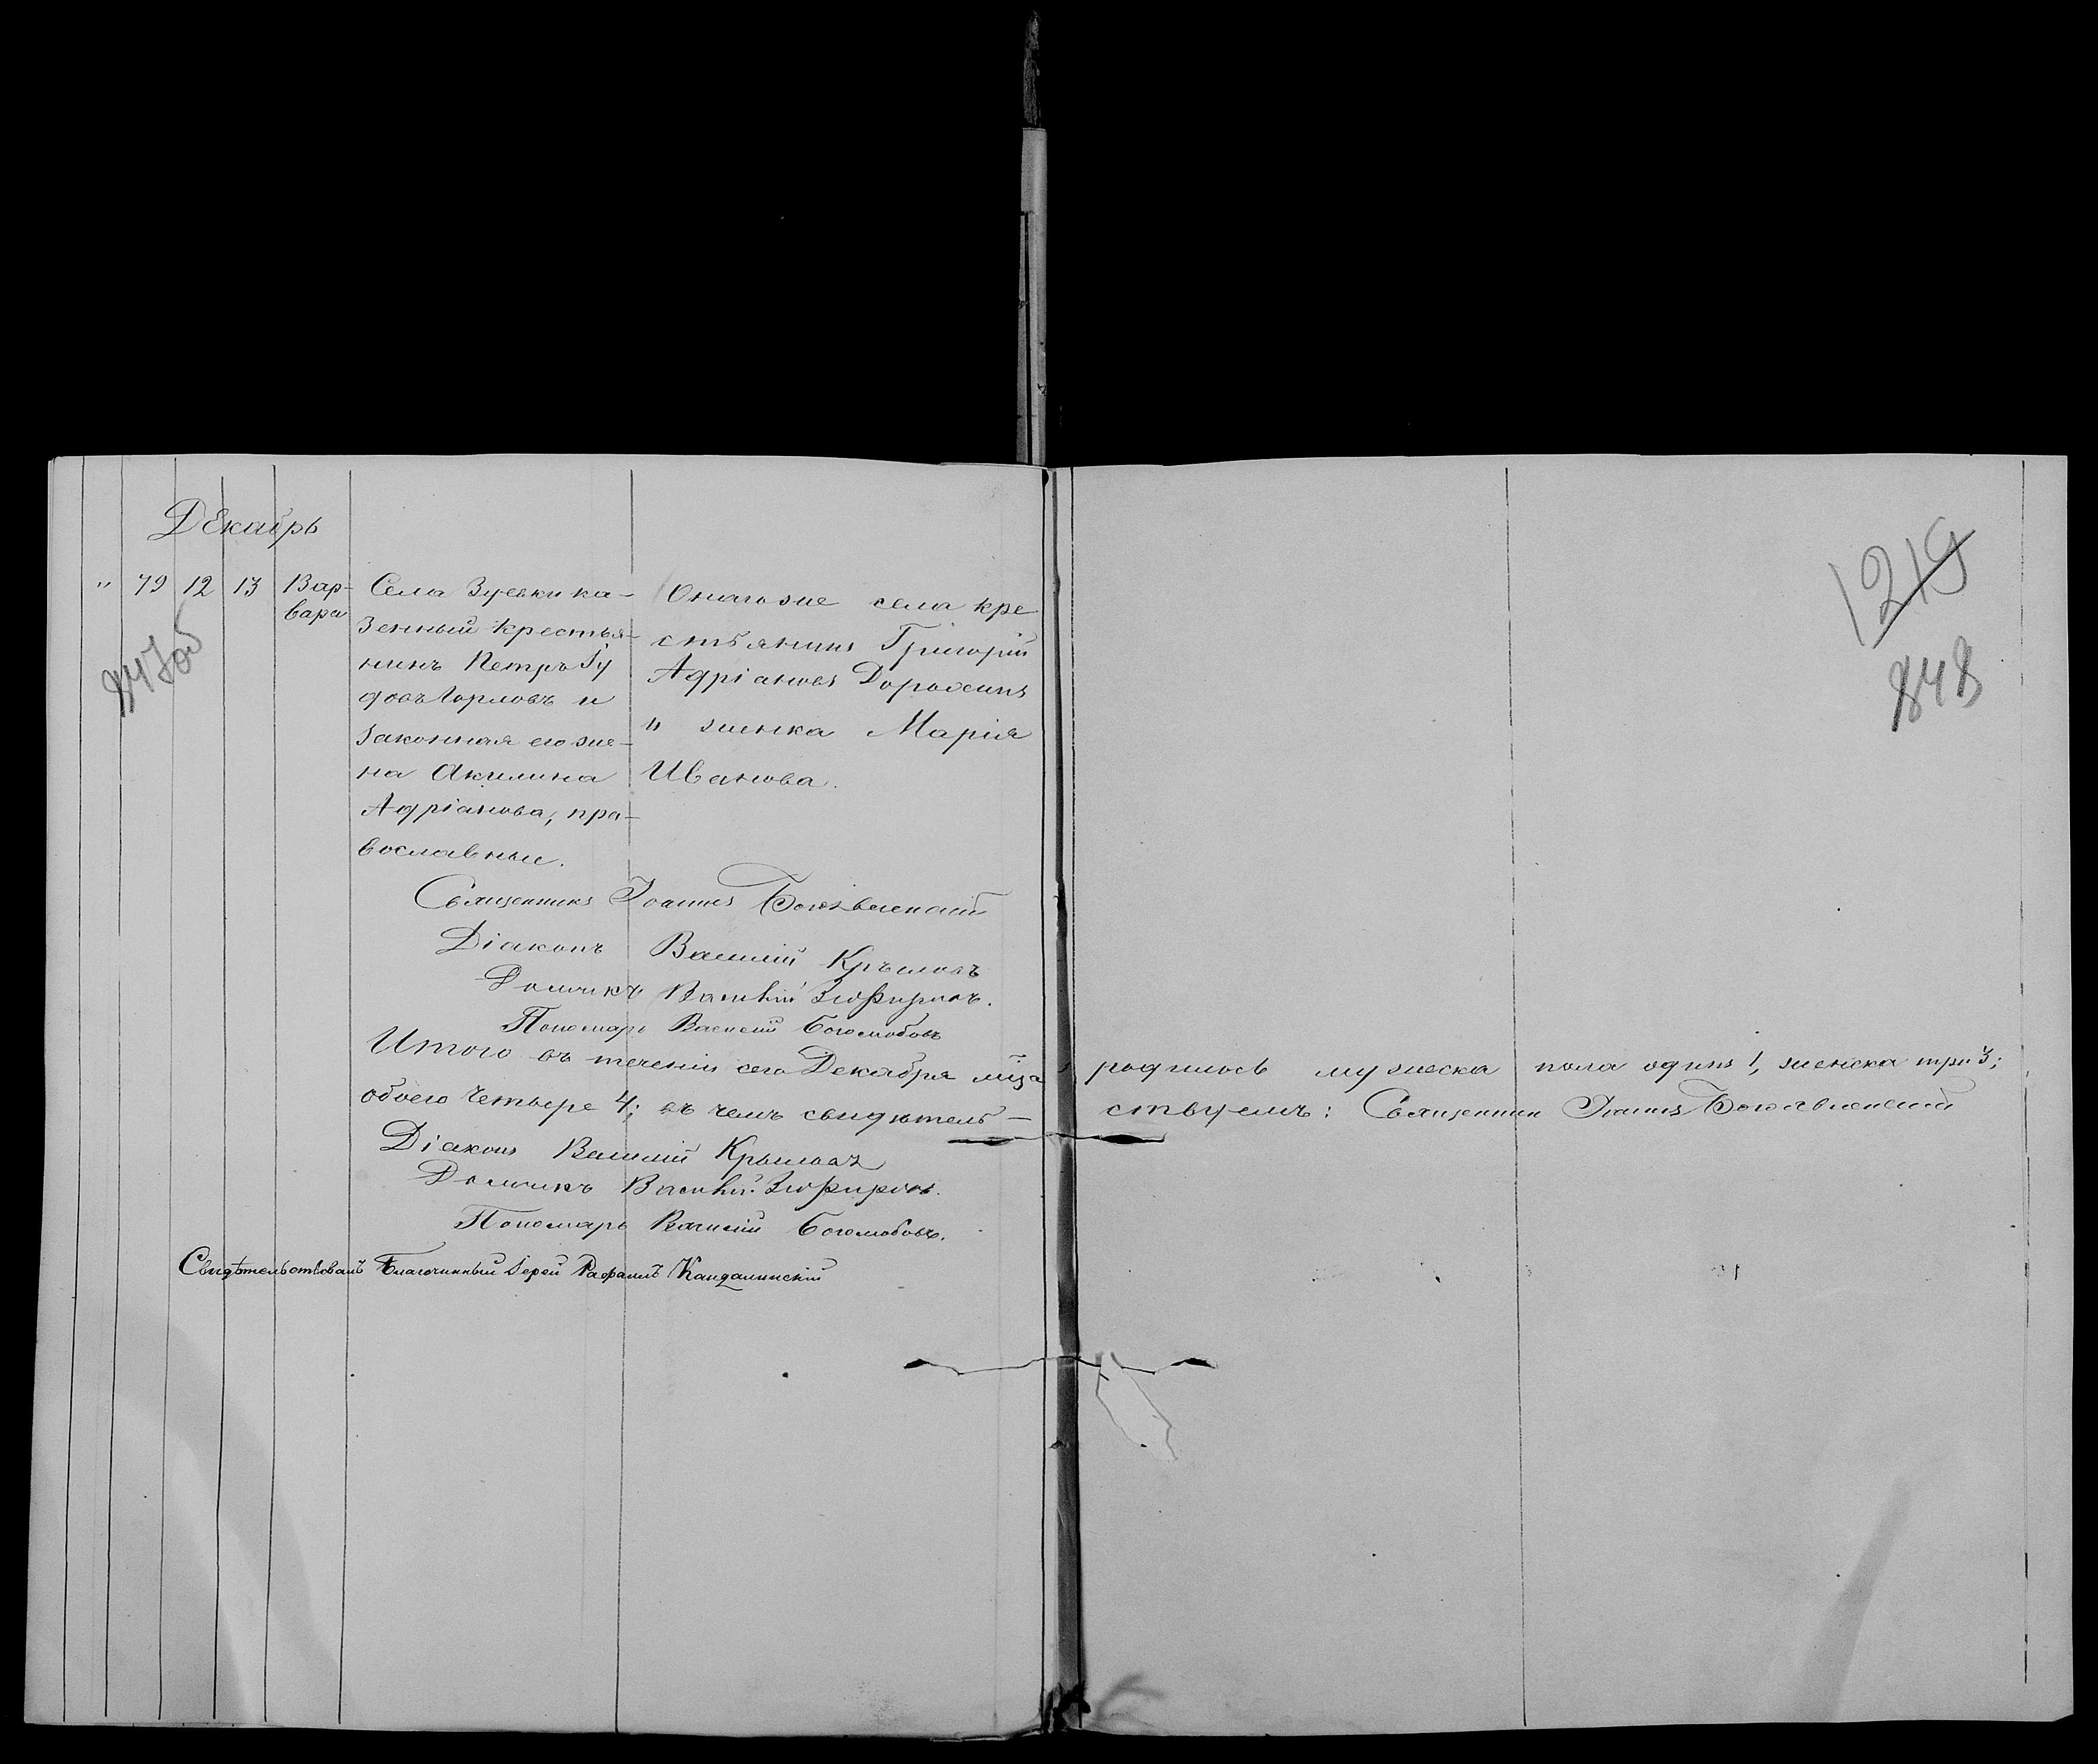 Декабрь
" 79 12 13 Вар-
вара
Села Зуевки ка-
зенный крестья-
нинъ Петръ Гу
довъ Горловъ и
законная его же-
на Акилина
Адріанова, пра-
вославные.
Онагоже села кре
стьянинъ Григорій
Адріановъ Дорохинъ
и женка Марія
Иванова.
847об
Священникъ Іоаннъ Богоявленскій
Діаконъ Василій Крыловъ
Дьячикъ Василій Зефировъ.
Пономарь Василій Боголюбовъ
Итого въ теченіи сего Декабря мца родилось мужеска пола одинъ 1, женска три 3;
обоего четыре 4; въ чемъ свидѣтель- ствуемъ: Священник Іоаннъ Богоявленскій
Діаконъ Василій Крыловъ
Дьячикъ Василій Зефировъ.
Пономарь Василій Боголюбовъ.
Свидѣтельствовалъ Благочинный Іерей Рафаилъ Кандалинскій
1219
848